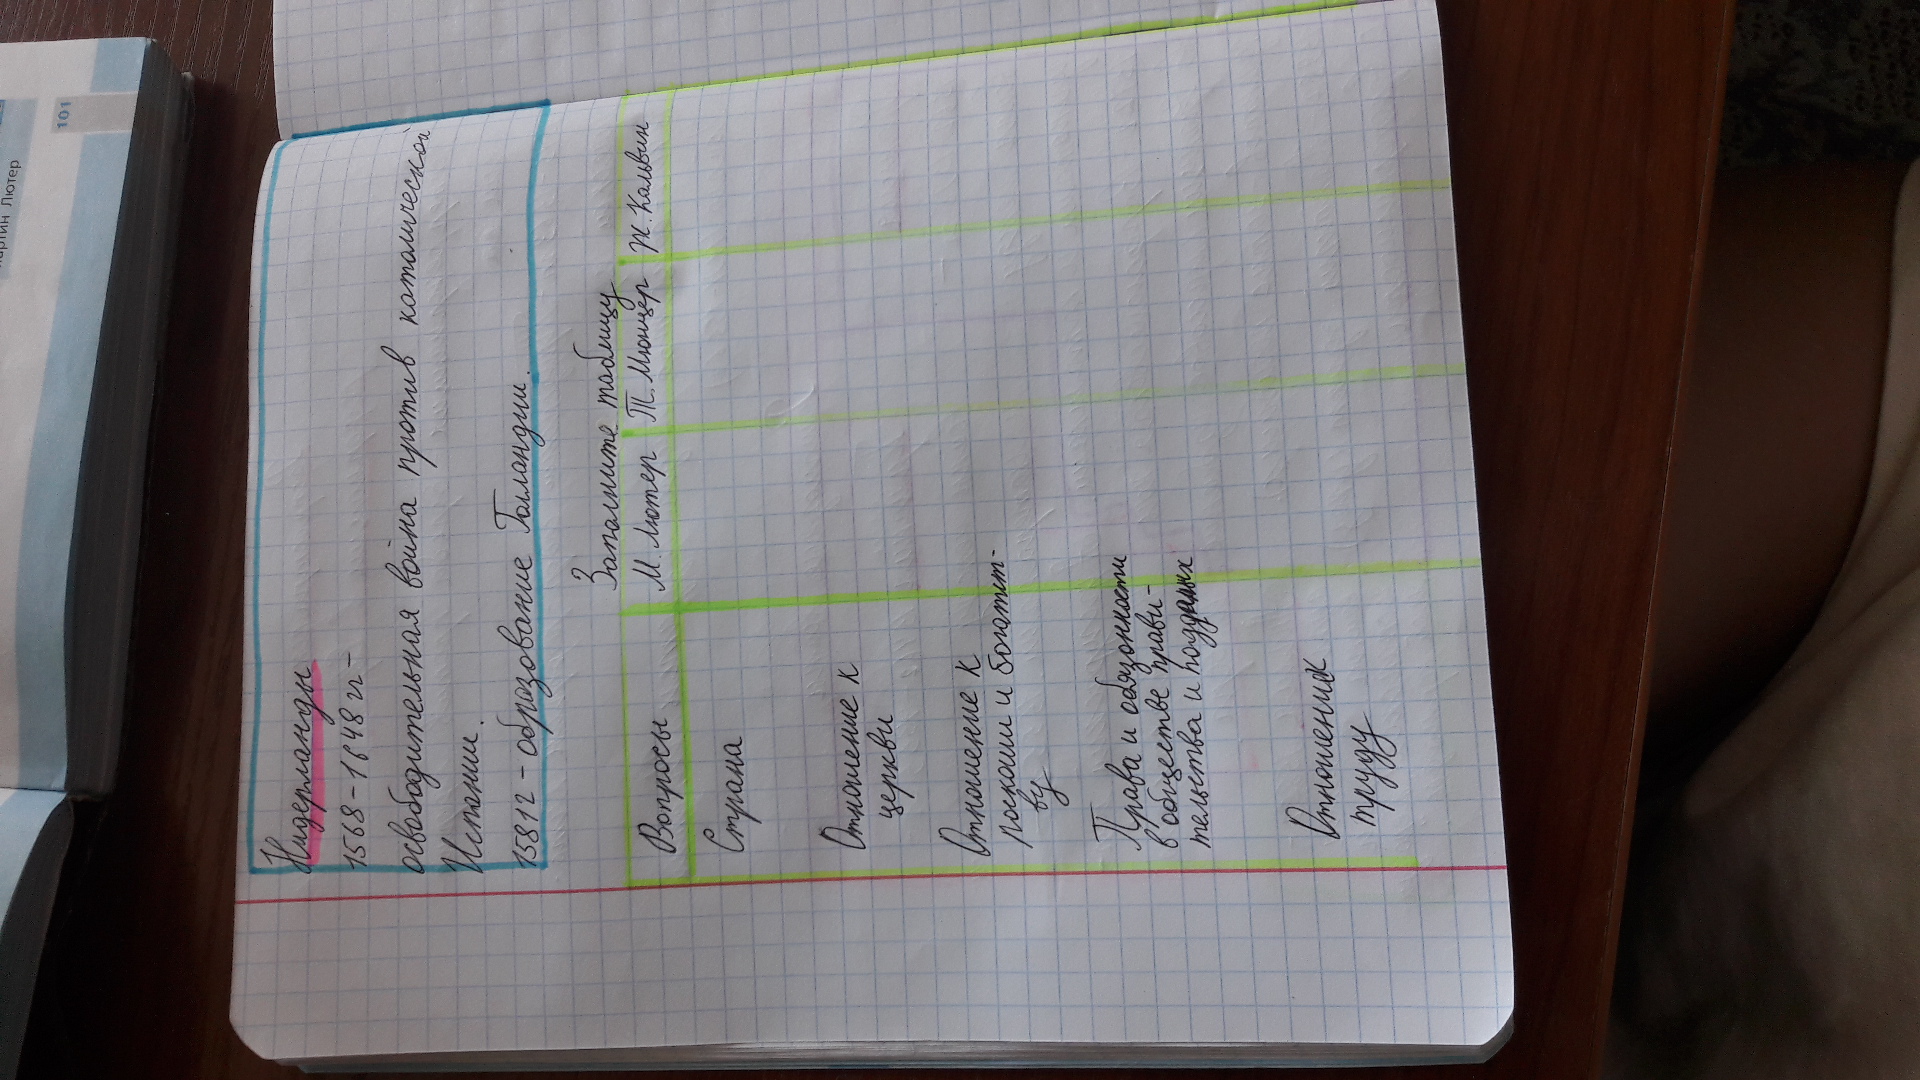 101
Мартин Лютер
Нидерланды
1568-1648 гг -
освободительная война против католической
Испании.
1581г - образование Голландии.
Заполните таблицу
Вопросы М. Лютер Т. Мюнцер Ж. Кальвин
Страна
Отношение к
церкви
Отношение к
роскоши и богатст-
ву
Права и обязонности
в обществе прави-
тельства и подданых
Отношение к
труду